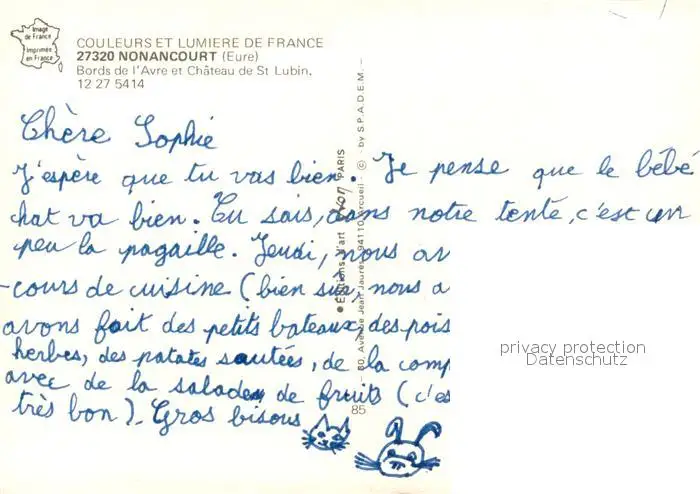 Image
de France
Imprimée
en France
COULEURS ET LUMIERE DE FRANCE
27320 NONANCOURT (Eure)
Bords de l'Avre et Château de St Lubin.
12 27 5414
Chère Sophie
J'espère que tu vas bien. Je pense que le bébé
chat va bien. Tu sais, dans notre tente, c'est un
peu la pagaille. Jeudi, nous av
-cours de cuisine (bien sûr, nous a
avons fait des petits bateaux des pois
herbes, des patates sautées, de la comp
avec de la salade de fruits (c'es
très bon). Gros bisous
● Editions d'art Yvon PARIS
- 80, Avenue Jean Jaurès, 94110 Arcueil - © - by S.P.A.D.E.M. -
85
privacy protection
Datenschutz